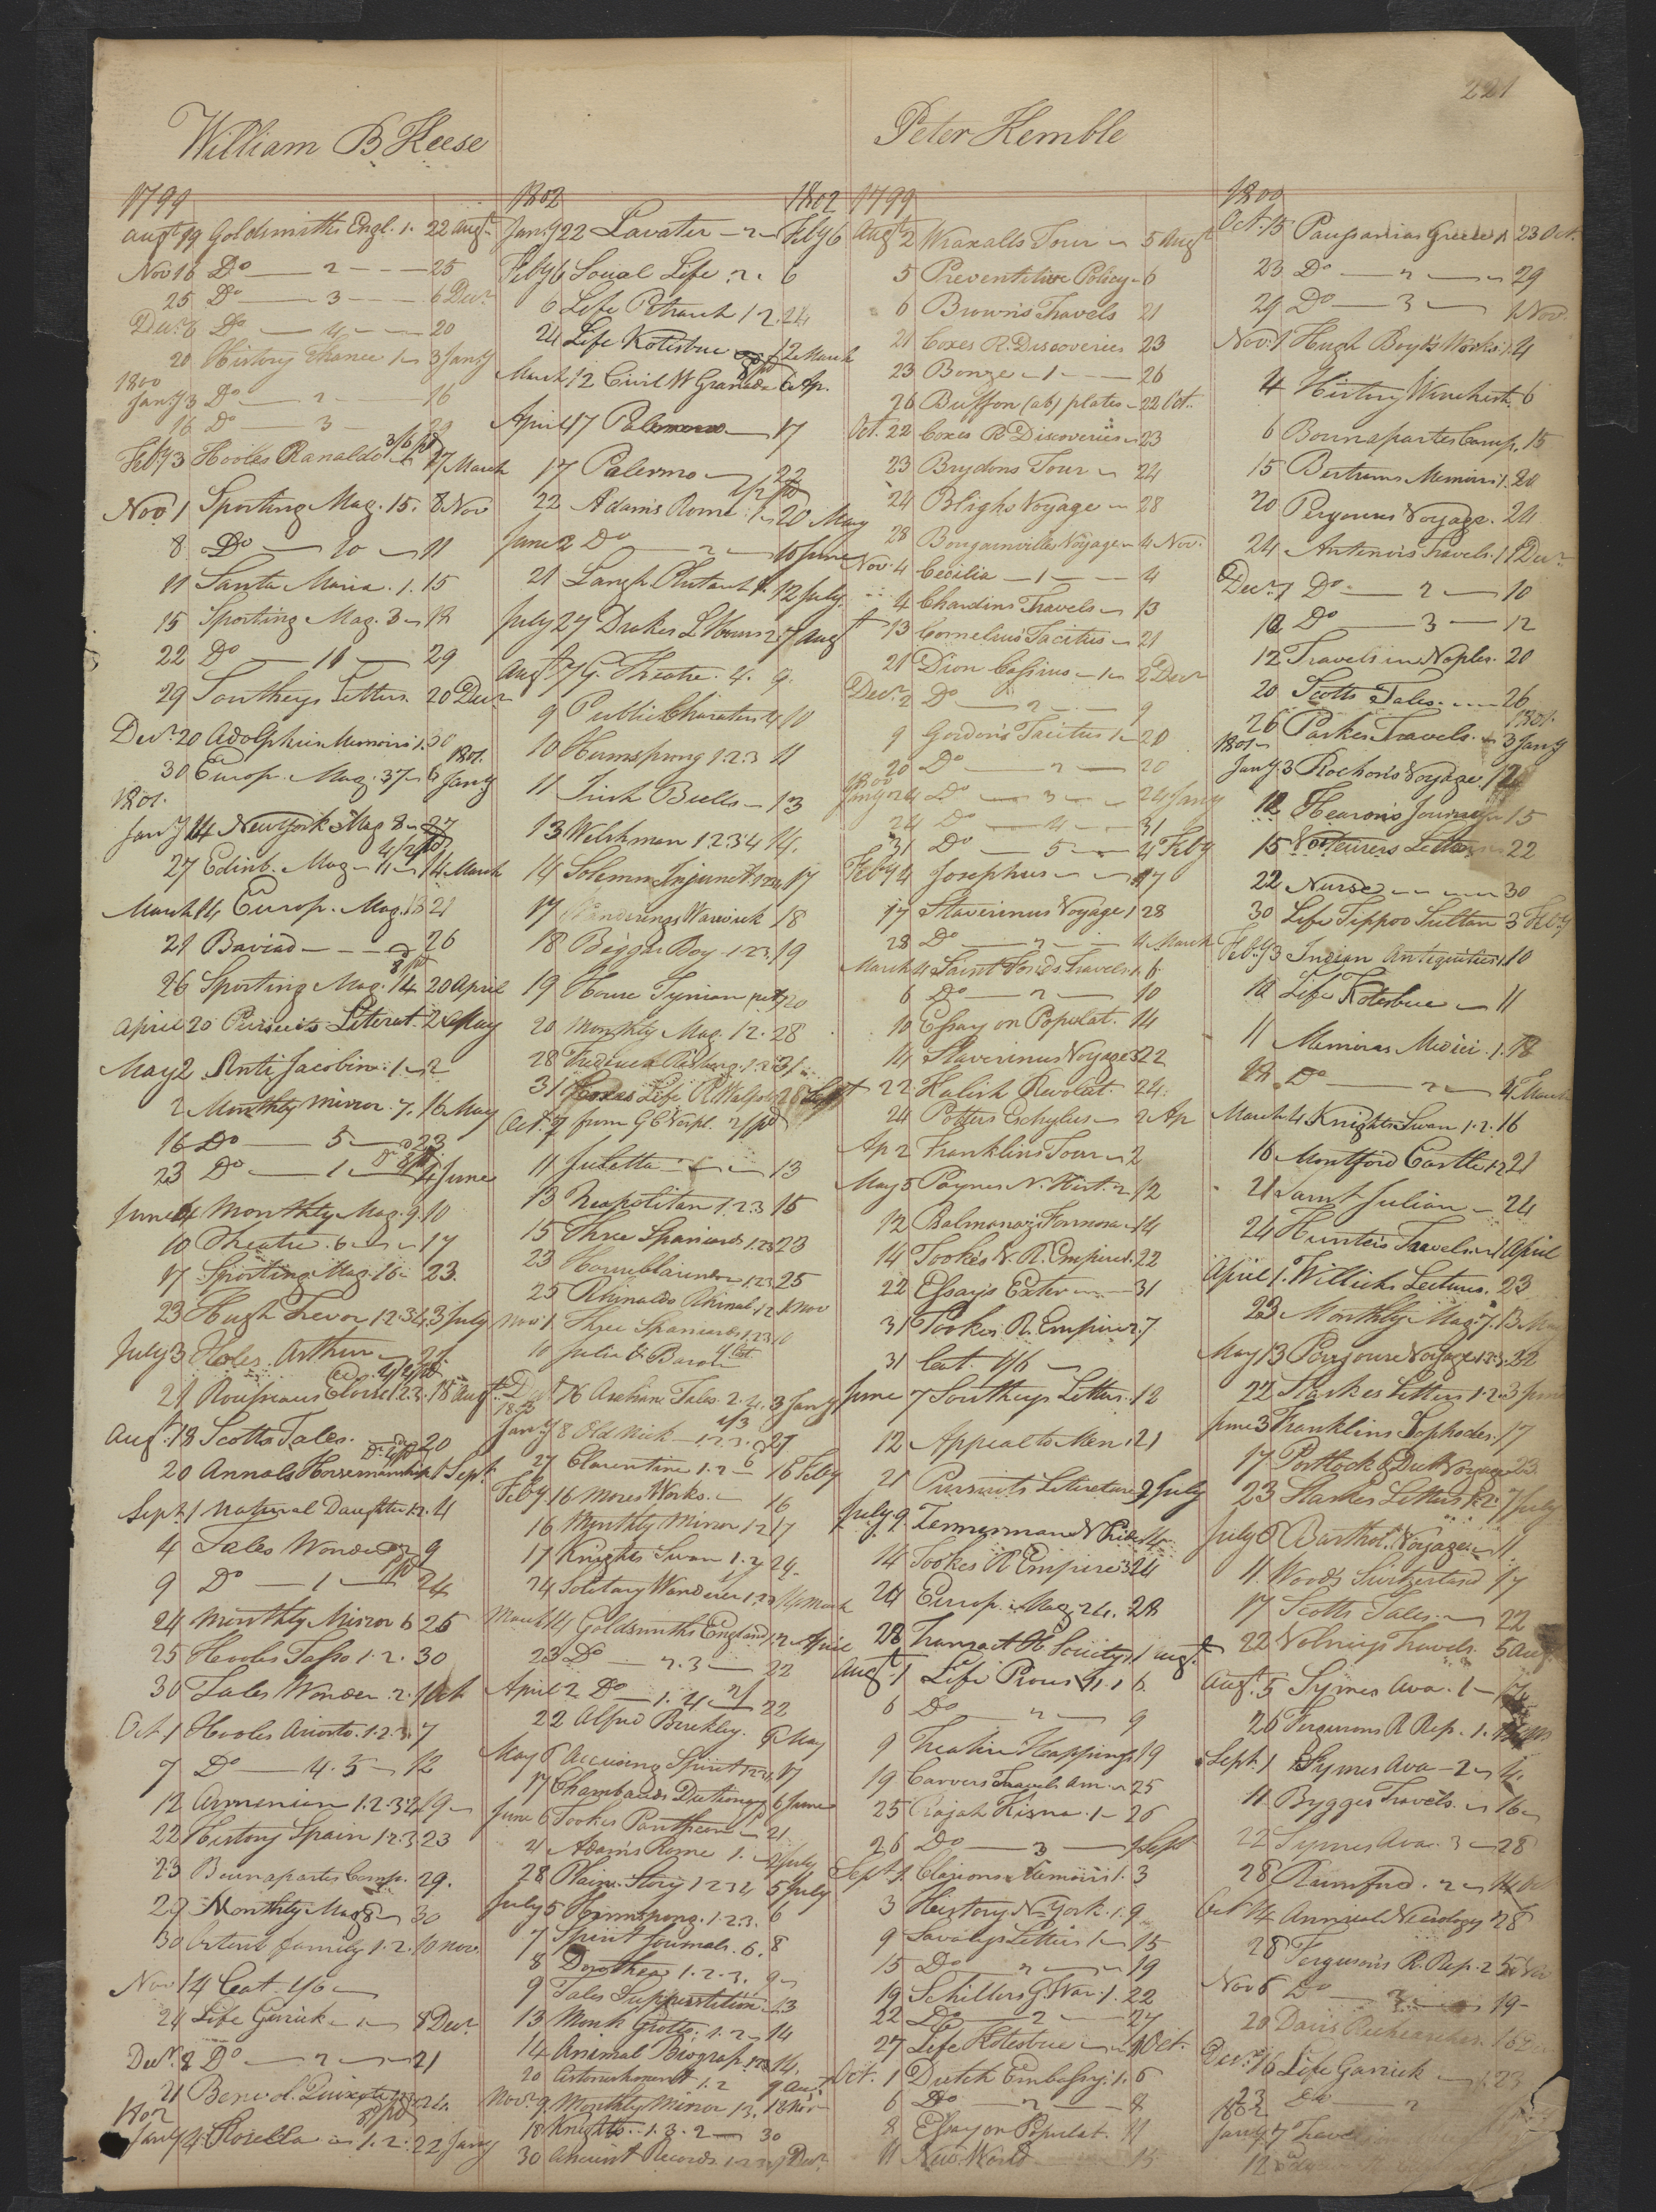 221
William B Keese
1799
Augt 19 Goldsmiths Engl. 1. 22 Augt
Nov 16 Do 2 25
25 Do 3 6 Decr
Decr 6 Do 4 20
20 History France 1 3 Jany
1800
Jany 3 Do 2 16
16 Do 3
Feby 3 Hooles Ranaldo 3/6 pd 17 March
Nov 1 Sporting Mag. 15. 8 Nov
8 Do 10 11
11 Santa Maria. 1. 15
15 Sporting Mag. 3 18
22 Do 11 29
29 Southeys Letters. 20 Decr
Decr 20 Adolphus Memoirs 1. 30
1801.
30 Europ. Mag. 37 6 Jany
1801.
Jany 14 New York Mag 8 27
27 Edinb. Mag 11 14 March
March 14 Europ. Mag. 21
21 Baviad 26
26 Sporting Mag. 14 20 April
April 20 Pursuits Literat. 2 May
May 2 Anti Jacobin 1 2
2 Monthly mirror. 7. 16 May
16 Do 5 23
23 Do 1 4 June
June 4 Monthly Mag. 9. 10
10 Theatre. 6 17
17 Sporting Mag. 16 23.
23 Hugh Trevor 1.2.3.4. 3 July
July 3 Holes Arthur 21
21 Rousseaus Eloise 1.2.3. 18 Augt
Augt. 18 Scotts Tales. 20
20 Annals Horsemanship 1 Sept.
Sept. 1 Natural Daughter 1.2. 4
4 Tales Wonder 2 9
9 Do 1 24
24 Monthly Mirror 6 25
25 Hooles Tasso 1.2. 30
30 Tales Wonder. 2. 1 Oct
Oct. 1 Hooles Ariosto. 1.2.3. 7
7 Do 4.5 12
12 Armenian 1.2.3.4 19
22 History Spain 1.2.3 23
23 Buonapartes Camp. 29.
29 Monthly Mag 8 30
30 family 1.2. 10 Nov
Nov 14 Cat. 1/6
24 Life Garrick 1 8 Decr
Decr. 8 Do 2 21
21 Benevol. Quixote 24.
1802
Jany 4 Rosella 1.2. 22 Jany
1802 1802
Jany 22 Lavater 2 Feby 6
Feby 6 Social Life 2. 6
6 Life Petrarch 1 2. 24
24 Life Kotzebue 12 March
March 12 Civil W Granada 6 Ap.
April 17 17
17 Palermo 22
22 Adams Rome 1 20 May
June 2 Do 2 10 June
21 Langh. Plutarch 1. 12 July.
July 27 Drakes L Hours 2. 7 Augt
Augt 7 G. Theatre. 4. 9.
9 Public Characters 4 10
10 Hermsprong 1 2 3 11
11 Irish Bulls 13
13 Welshman 1 2 3 4 14.
14 Solemn Injunct. 17
17 Wanderings Warwick 18
18 Beggar Boy 1.2.3. 19
19 House Tynian 20
20 Monthly Mag. 12. 28
28 31
31 Coxes Life R Walpole 28 Sept
Oct. 7 from G C Verpl. 2/ pd
11 Julietta 13
13 Neapolitan 1.2.3 15
15 Three Spaniards 1.2.3 23
23 1.2.3 25
25 Rhinaldo Rhinal. 1.2 1 Nov
Nov 1 Three Spaniards 1.2.3 10
10 Julia &
16 Arabian Tales. 2.4. 3 Jany
1803
Jany 8 Old Nick 1.2.3. 27
27 Clarentine 1.2 16 Feby
Feby 16 Mores Works. 16
16 Monthly Mirror 12 17
17 Knights Swan 1.2 24
24 Solitary Wanderer 1.2.3 14 March
March 14 Goldsmiths England 1.2 April
22 Do 2.3 22
April 2 Do 1.4 2/ 22
22 Alfred Berkley. 6 May
May 6 Accusing Spirit 1.2.3.4 17
17 Chambauds Dictionary 6 June
June 6 Tookes Pantheon 21
21 Adams Rome 1. July
28 Plain Story 1 2 3 4 5 July
July 5 Hermsprong. 1.2.3. 6
7 Spirit Journals. 6. 8
8 Dorothea 1.2.3. 9
9 Tales Superstition 13
13 Monk Grotto. 1.2 14
14 Animal Biograp. 1.2.3. 14.
20 1.2
Novr. 9 Monthly Mirror 13. 18 Nov
18 Knights. 1.3.2 30
30 Ancient Records. Decr.
Peter Kemble
1799
Augt 2 Wraxalls Tour 5 Augt
5 Preventitive Policy 6
6 Browns Travels 21
21 Coxes R. Discoveries 23
23 Bonze 1 26
26 Buffon (ab) plates 22 Oct.
Oct. 22 Coxes R Discoveries 23
23 Brydons Tour 24
24 Blighs Voyage 28
28 Bougainvilles Voyage 4 Nov.
Nov. 4 Cecilia 1 4
4 Chardins Travels 13
13 Cornelius Tacitus 21
21 Dion Cassius 1 2 Decr
Decr. 2 Do 2 9
9 Gordons Tacitus 1 20
20 Do 2 20
1800
Jany 24 Do 3 24 Jany
24 Do 4 31
31 Do 5 4 Feby
Feby 4 Josephus 17
17 Stavorinus Voyage 1 28
28 Do 2 4 March
March 4 Saint Fonds Travels 1. 6
6 Do 2 10
10 Essay on Populat. 14
14 Stavorinus Voyage 3 22
22 Polish Revolut. 24.
24 Potters Eschylus 2 Ap
Ap 2 Franklins Tour 2
May 5 Paynes N. Hist. 2 12
12 Psalmanaz: Formosa 14
14 Tookes V. R. Empire 1. 22
22 Essays Exeter 31
31 Tookes R. Empire 2. 7
31 Cat. 1/6
June 7 Southeys Letters. 12
12 Appeal to Men 21
21 Pursuits Literature 9 July
July 9 14
14 Tookes R Empire 3 24
24 Europ. Mag. 24. 28
28 Transact R Society 1 1 Augt
Augt. 1 Life Pious VI. 1 6
6 Do 2 9
9 19
19 Carvers Travels Am. 25
25 Rajah Kisna. 1 26
26 Do 3 1 Sept
Sept 1. Clarions Memoirs 1. 3
3 History N. York. 1. 9
9 Savarys Letters 1 15
15 Do 2 19
19 Schillers G. War. 1. 22
22 Do 2 27
27 Life Kotzebue 1 Oct.
Oct. 1 Dutch Embassy. 1. 6
6 Do 2 8
8 Essay on Populat. 11
11 New World 15
1800
Oct. 15 Pausanias Greece 1 23 Oct.
23 Do 2 29
29 Do 3 1 Nov.
Nov. 1 Hugh Boyds Works 1. 4
4 History Winchest. 6
6 Bounapartes Camp. 15
15 Bertrams Memoirs 1. 20
20 Peyrouses Voyage. 24
24 Antenors Travels. 1 1 Decr
Decr. 1 Do 2 10
10 Do 3 12
12 Travels in Naples. 20
20 Scotts Tales. 26
1801.
26 Parkes Travels. 3 Jany
1801
Jany. 3 Rochons Voyage 12
12 Hearons Journey 15
15 Letters 22
22 Nurse 30
30 Life Tippoo Sultan 3 Feby
Feby 3 Indian Antiquities 1. 10
10 Life Kotzebue 11
11 Memoirs Medici. 1. 18
18 Do 2 4 March
March 4 Knights Swan 1.2. 16
16 Montford Castle 1.2 21
21 Saint Julian 24
24 Hunters Travels 1 April
April 1. Willichs Lectures. 23
23 Monthly Mag. 7. 13 May
May 13 Peyrouse Voyage 1.2.3. 22
22 Starkes Letters 1.2. 3 June
June 3 Franklins Sophocles. 17
17 Portlock & Dix Voyage 23
23 Starkes Letters 1.2. 7 July
July 8 Barthol. Voyage 11
11. Woods Switzerland 17
17 Scotts Tales 22
22 Volneys Travels. 5 Aug
Augt. 5 Symes Ava. 1
26 Fergusons R Rep. 1.
Sept. 1 Symes Ava 2 11
11. Bygges Travels. 16
22 Symes Ava. 3 28
28 Rumford. 2 14 Oct
Oct 14 Annual Necrology 28
28 Fergusons R. Rep. 2 5 Nov
Nov 6 Do 3 19
20 Davis Recherches. 16 De
Decr. 16 Life Garrick 1. 23
23 Do 2
1802
Jany 7
12